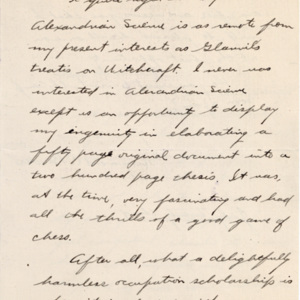 Alexandrian Science is as remote from
my present interests as Glamils
treatis on Witchcraft. I never was
interested in Alexandrian Science
except is an opportunity to display
my engenuity in elaborating a
fifty page original document into a
two hundred page thesis. It was,
at the time, very fascinating and had
all the thrills of a good game of
chess.
After all, what a delightfully
harmless occupation scholarship is